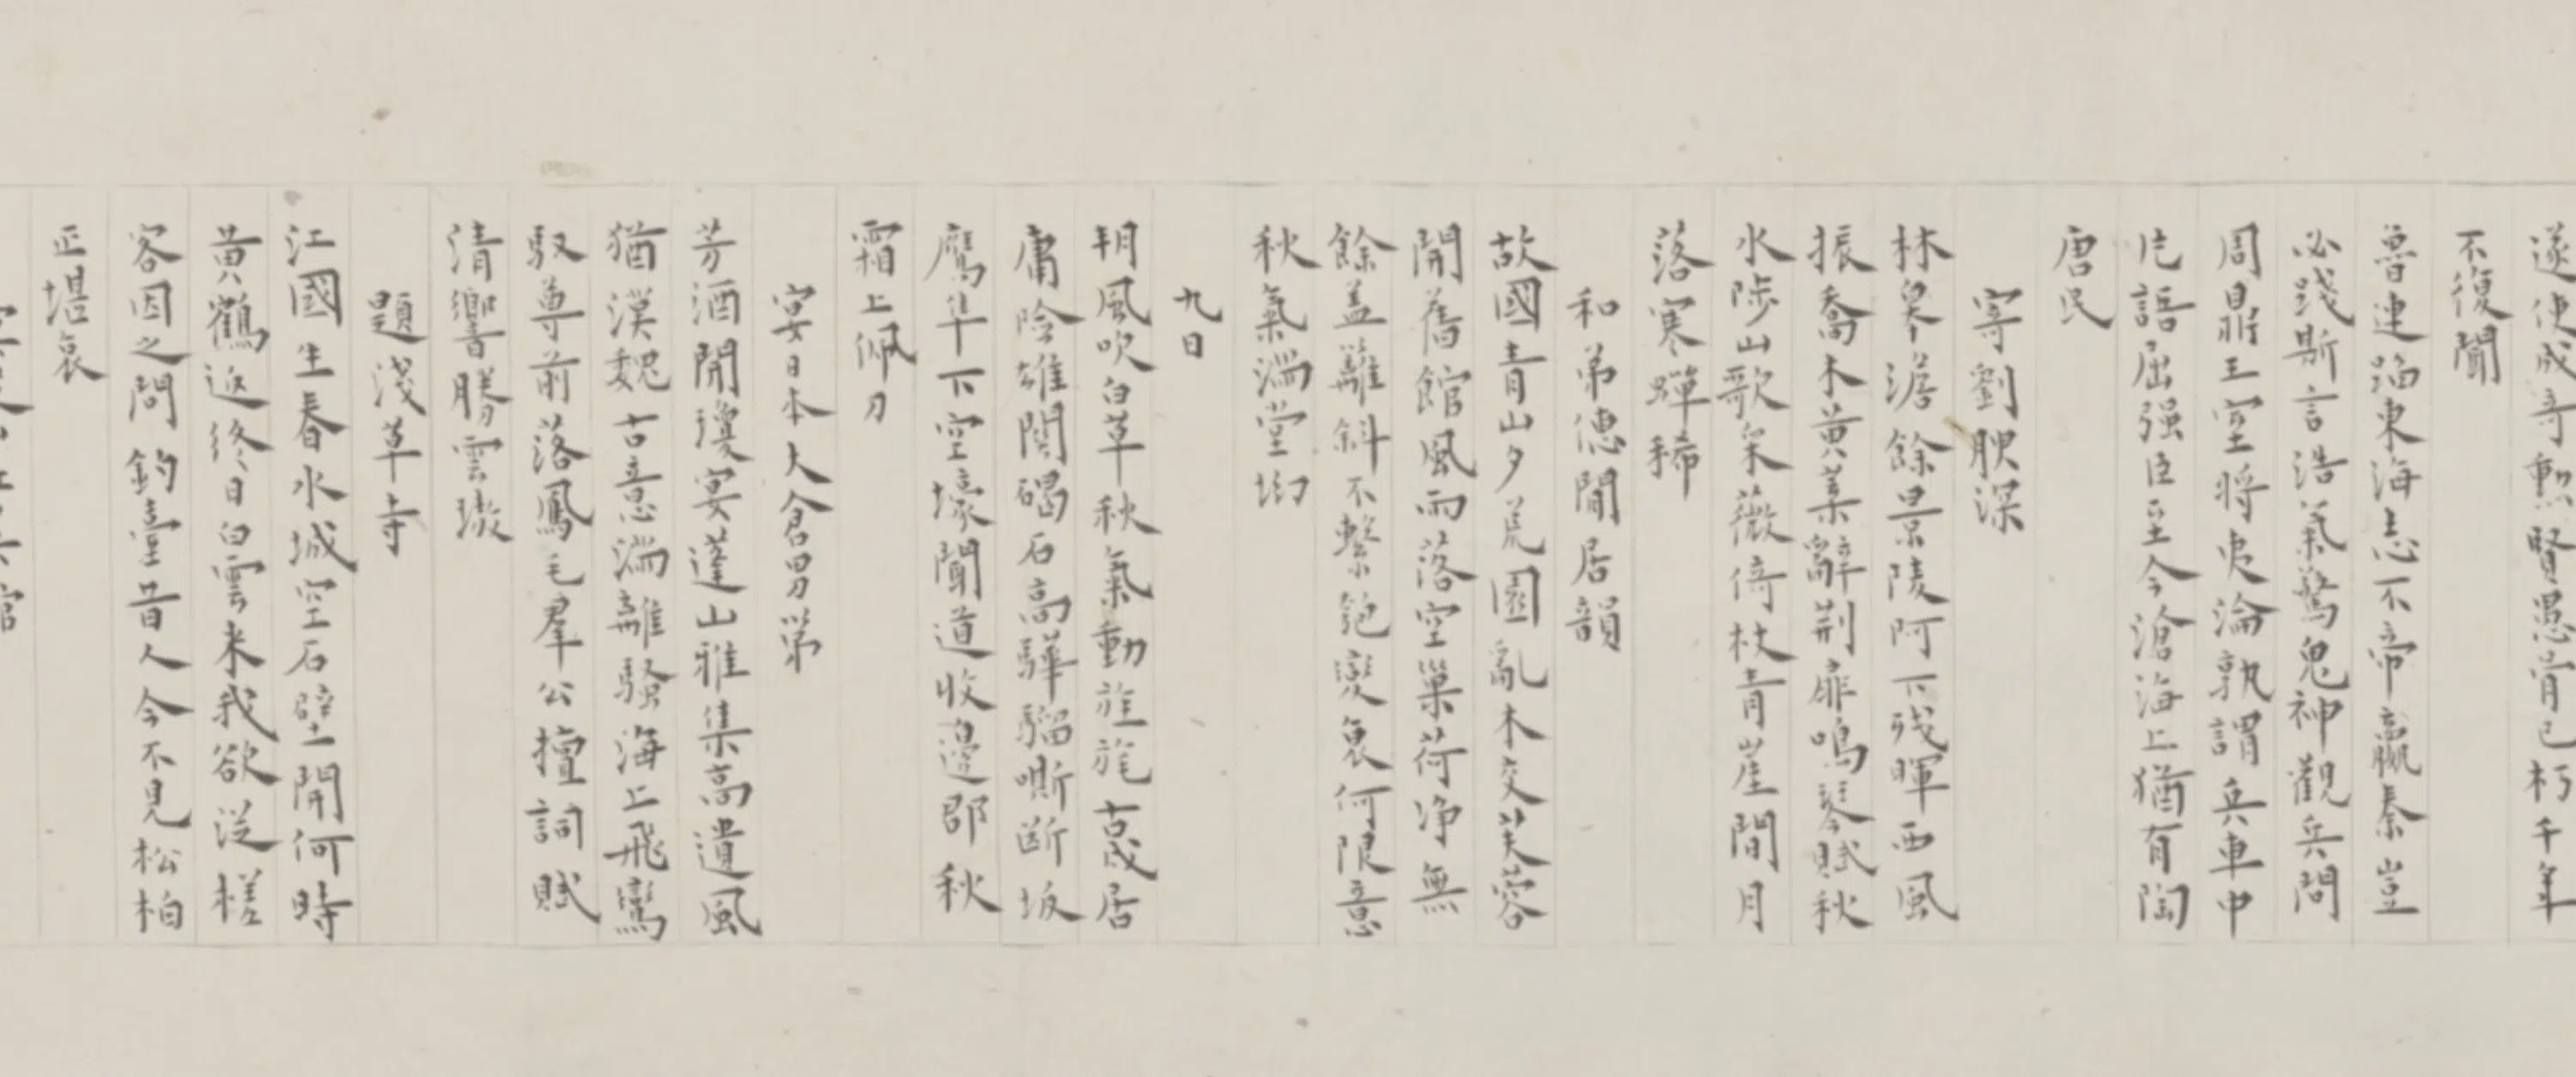 遂使成奇勲賢愚骨已朽千年
不復聞
魯連蹈東海志不帝嬴秦豈
必踐斯言浩氣驚鬼神觀兵問
周鼎王室將夷淪孰謂兵車中
片語屈强臣至今滄海上猶有陶
唐民
寄劉腴深
林皋澹餘景陵阿下殘暉西風
振喬木黄葉辭荆扉鳴琴賦秋
水陟山歌采薇倚杖青崖間月
落寒蟬稀
和弟僡閒居韻
故國青山夕荒園亂木交芙蓉
開舊館風雨落空巢荷净無
餘蓋籬斜不繫匏變衰何限意
秋氣滿堂坳
九日
朔風吹白草秋氣動旌旄古戍居
庸險雄關碣石高驊騮嘶断坂
鷹隼下空壕聞道收邊郡秋
霜上佩刀
宴日本大倉男第
芳酒開瓊宴蓬山雅集高遺風
猶漢魏古意滿離騷海上飛鸞
馭尊前落鳳毛羣公擅詞賦
清響勝雲璈
題淺草寺
江國生春水城空石壁開何時
黄鶴返終日白雲來我欲從槎
客因之問釣臺昔人今不見松柏
正堪哀